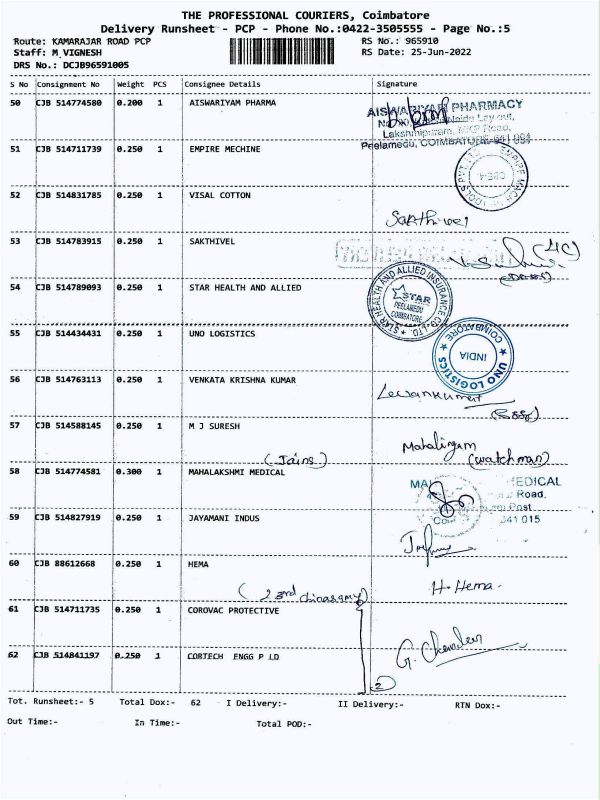 THE PROFESSIONAL COURIERS, Coimbatore
Delivery Runsheet - PCP - Phone No.:0422-3505555 - Page No.:5
Route: KAMARAJAR ROAD PCP
RS No.: 965910
Staff: M VIGNESH
RS Date: 25-Jun-2022
DRS No.: DCJB96591005
S No Consignment No Weight PCS Consignee Details Signature
50 CJB 514774580 0.200 1 AISWARIYAM PHARMA
AISWARIYAM PHARMACY
Lay out,
Lakshmipuram, Road,
Peelamedu, COIMBATORE-641 004
51 CJB 514711739 0.250 1 EMPIRE MECHINE
52 CJB 514831785 0.250 1 VISAL COTTON
Sakthivel
53 CJB 514783915 0.250 1 SAKTHIVEL
54 CJB 514789093 0.250 1 STAR HEALTH AND ALLIED
STAR HEALTH AND ALLIED INSURANCE CO. LTD.
STAR
PEELAMEDU
COIMBATORE
55 CJB 514434431 0.250 1 UNO LOGISTICS
UNO LOGISTICS
COIMBATORE
INDIA
56 CJB 514763113 0.250 1 VENKATA KRISHNA KUMAR
57 CJB 514588145 0.250 1 M J SURESH
(Jains)
Mahalingam
(watchman)
58 CJB 514774581 0.300 1 MAHALAKSHMI MEDICAL
MEDICAL
Road,
Post
641 015
59 CJB 514827919 0.250 1 JAYAMANI INDUS
60 CJB 88612668 0.250 1 HEMA
H. Hema.
61 CJB 514711735 0.250 1 COROVAC PROTECTIVE
62 CJB 514841197 0.250 1 CORTECH ENGG P LD
2
Tot. Runsheet:- 5 Total Dox:- 62 I Delivery:- II Delivery:- RTN Dox:-
Out Time:- In Time:- Total POD:-